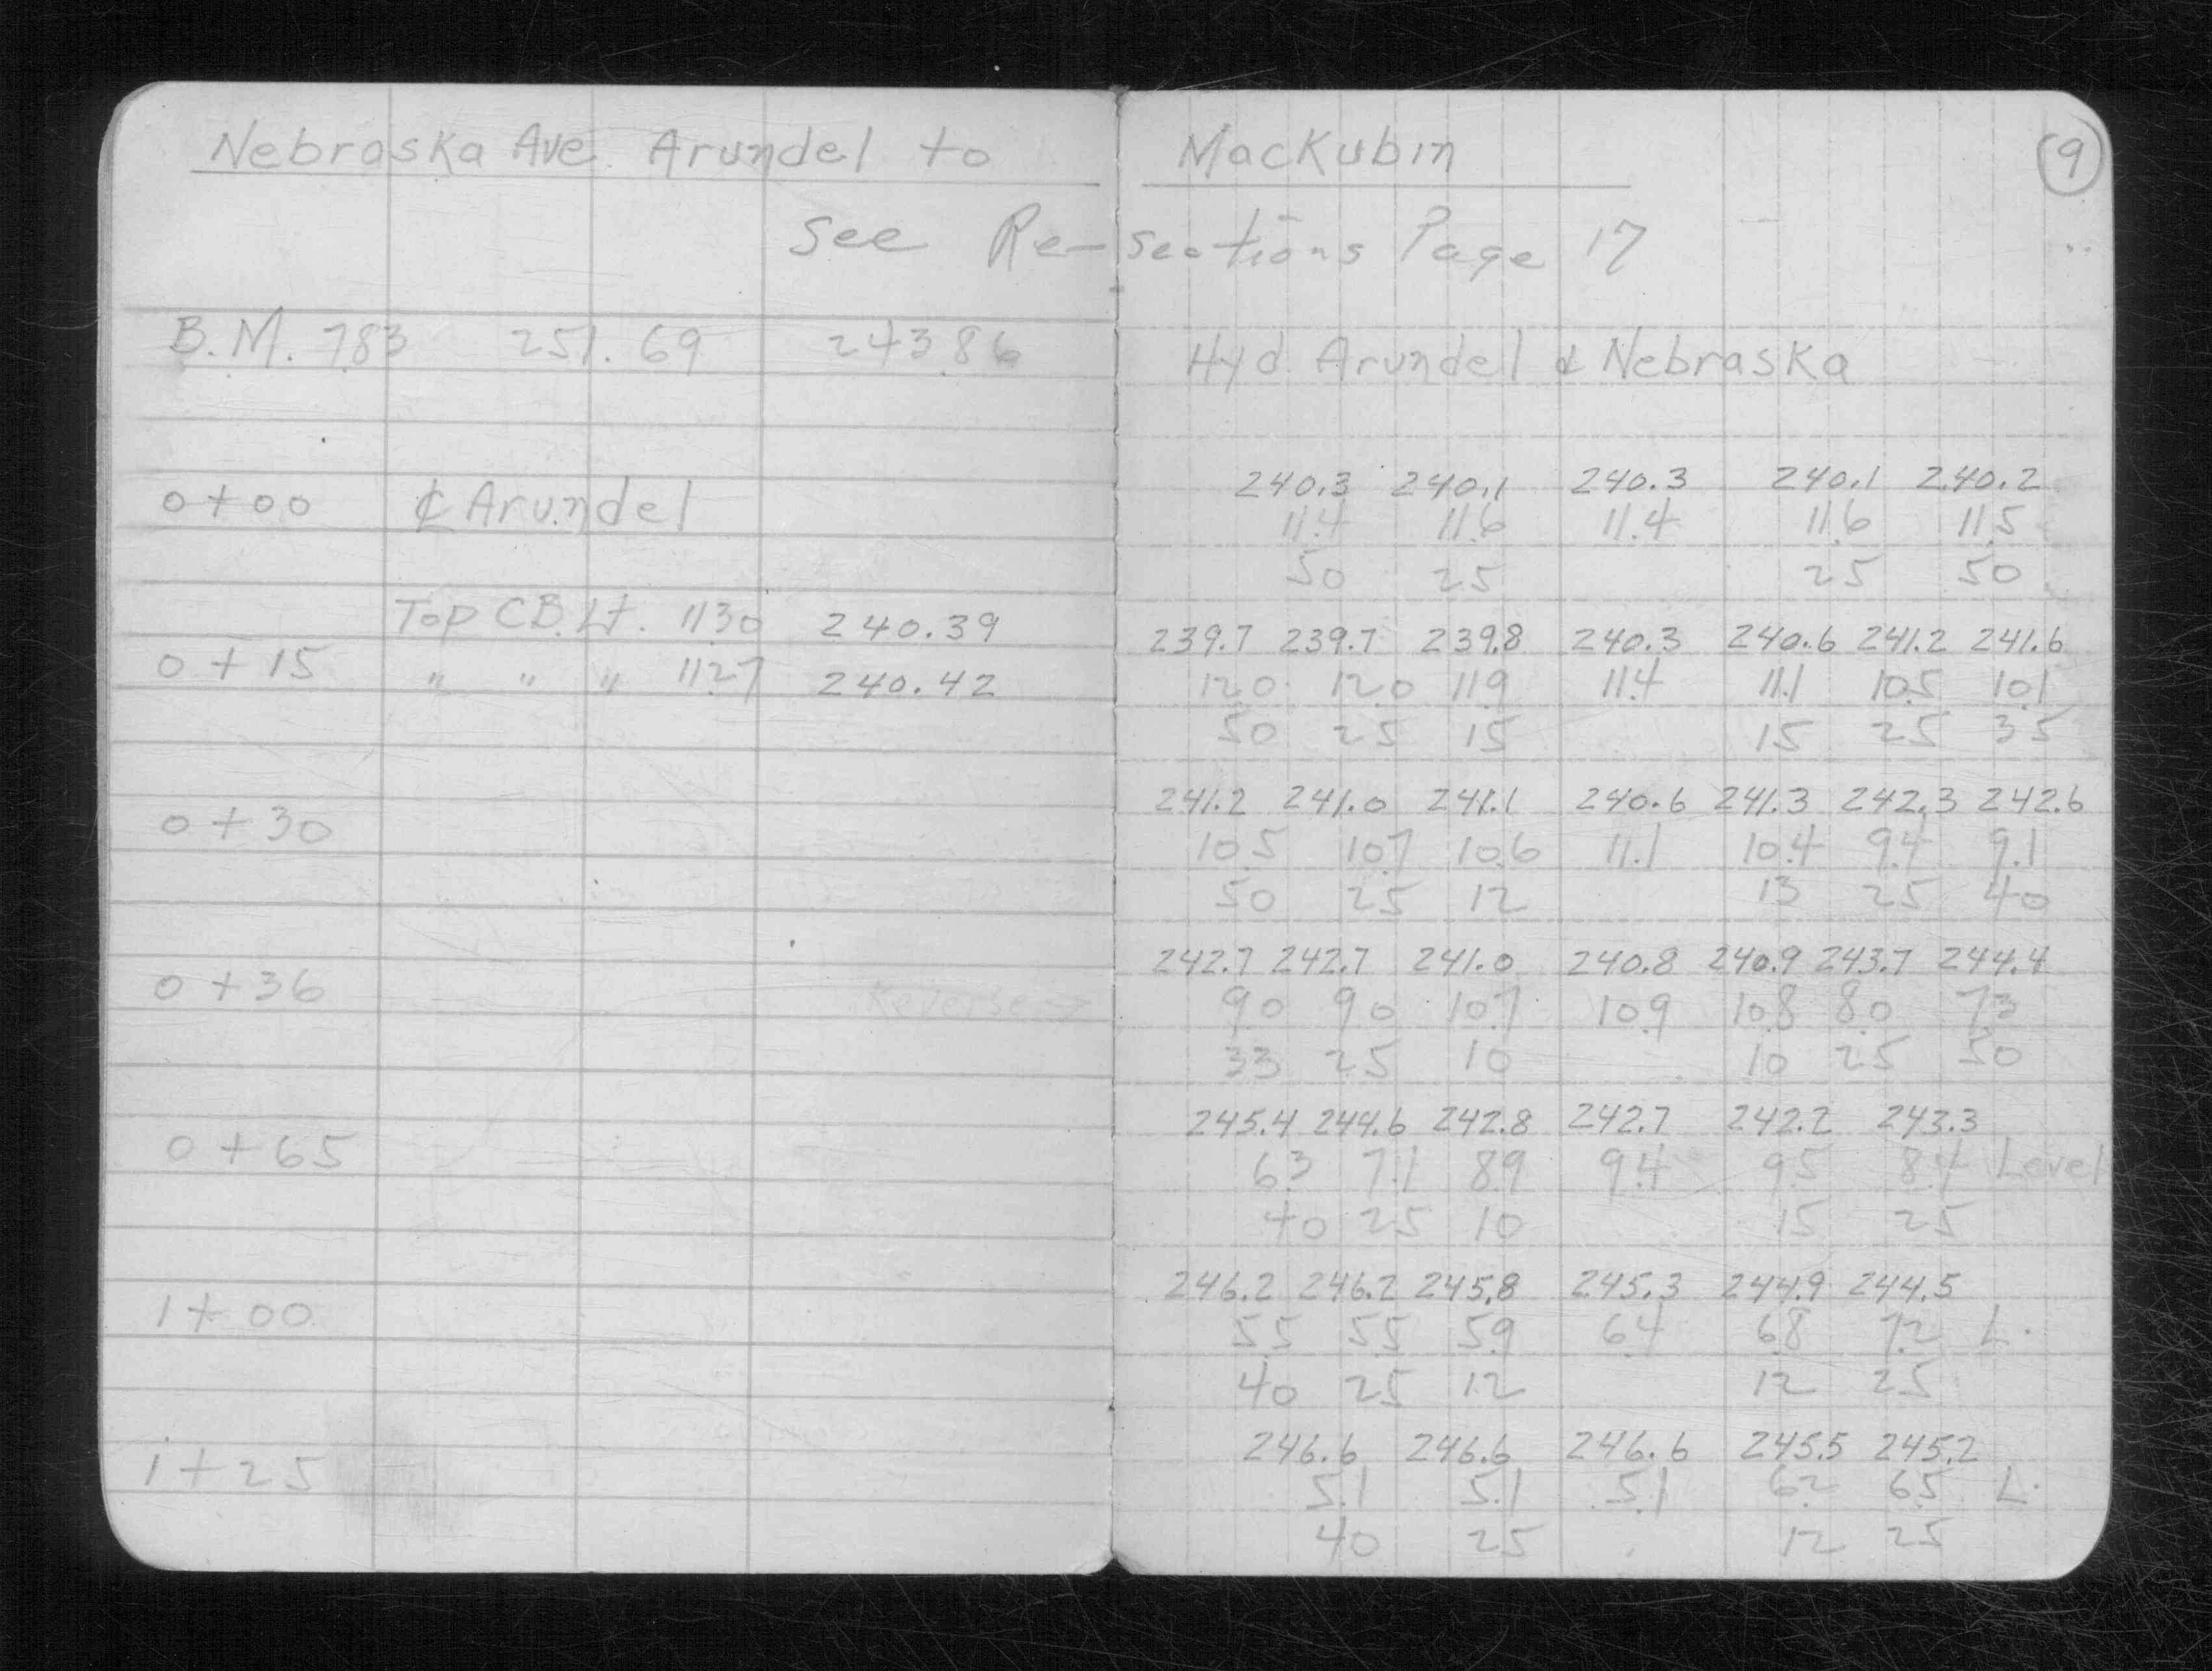 Nebraska Ave. Arundel to MacKubin 9
See Re-sections Page 17
B.M. 7.83 251.69 243.86 Hyd. Arundel & Nebraska
240.3 240.1 240.3 240.1 240.2
0+00 ₵ Arundel 11.4 11.6 11.4 11.6 11.5
50 25 25 50
Top C.B. Lt. 11.30 240.39 239.7 239.7 239.8 240.3 240.6 241.2 241.6
0+15 " " " 11.27 240.42 12.0 12.0 11.9 11.4 11.1 10.5 10.1
50 25 15 15 25 35
241.2 241.0 241.1 240.6 241.3 242.3 242.6
0+30 10.5 10.7 10.6 11.1 10.4 9.4 9.1
50 25 12 13 25 40
242.7 242.7 241.0 240.8 240.9 243.7 244.4
0+36 Reverse→ 9.0 9.0 10.7 10.9 10.8 8.0 7.3
33 25 10 10 25 50
245.4 244.6 242.8 242.7 242.2 243.3
0+65 6.3 7.1 8.9 9.4 9.5 8.4 Level
40 25 10 15 25
246.2 246.2 245.8 245.3 244.9 244.5
1+00 5.5 5.5 5.9 6.4 6.8 7.2 L.
40 25 12 12 25
246.6 246.6 246.6 245.5 245.2
1+25 5.1 5.1 5.1 6.2 6.5 L.
40 25 12 25